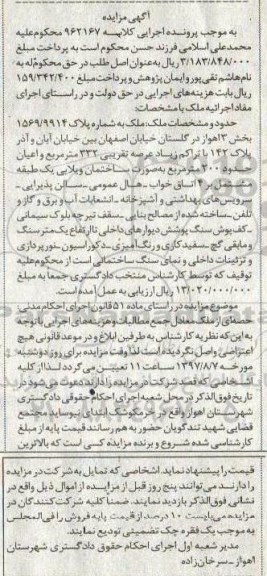 آگهی مزایده
به موجب پرونده اجرایی کلاسه ۹۶۲۱۶۷ محکوم‌علیه
محمدعلی اسلامی فرزند حسن محکوم است به پرداخت مبلغ
۳/۱۸۳/۸۴۸/۰۰۰ ریال به عنوان اصل طلب در حق محکوم‌له به
نام هاشم تقی‌پور و ایمان پژوهش و پرداخت مبلغ ۱۵۹/۳۴۲/۴۰۰
ریال بابت هزینه‌های اجرایی در حق دولت و در راستای اجرای
مفاد اجرائیه ملک با مشخصات:
حدود و مشخصات ملک: ملک به شماره پلاک ۱۵۶۹/۹۹۱۴
بخش ۳ اهواز در گلستان خیابان اصفهان بین خیابان آبان و آذر
پلاک ۱۴۲ با تراکم زیاد عرصه تقریبی ۳۳۲ مترمربع و اعیان
حدود ۲۰۰ مترمربع به‌صورت ساختمان ویلایی یک طبقه
مشتمل بر ۲ اتاق خواب - هال عمومی - سالن پذیرایی -
سرویس‌های بهداشتی و آشپزخانه - انشعابات آب و برق و گاز و
تلفن - ساخته شده از مصالح بنایی - سقف تیرچه بلوک سیمانی
- کف پوش سنگ پوشش دیوارهای داخلی تا ارتفاع یک متر سنگ
و مابقی گچ - سفیدکاری و رنگ‌آمیزی - دکوراسیون - نورپردازی
و تزئینات داخلی و نمای سنگ ساختمانی است از محکوم‌علیه
توقیف که توسط کارشناس منتخب دادگستری جمعا به مبلغ
۱۳/۰۲۰/۰۰۰/۰۰۰ ریال ارزیابی به عمل آمده است.
موضوع مزایده در راستای ماده ۵۱ قانون اجرای احکام مدنی
حصه‌ای از ملک معادل جمع مطالبات و هزینه‌های اجرایی با توجه
به این که نظریه کارشناس به طرفین ابلاغ و در موعد قانونی هیچ
اعتراضی واصل نگردیده است لذا وقت مزایده برای روز دوشنبه
مورخه ۱۳۹۷/۸/۷ ساعت ۱۱ تعیین می‌گردد لذا از کلیه
اشخاصی که قصد شرکت در مزایده را دارند دعوت می‌شود در
تاریخ فوق‌الذکر در محل شعبه اجرای احکام حقوقی دادگستری
شهرستان اهواز واقع در خرمکوشک ابتدای نیوساید مجتمع
قضایی شهید تندگویان حضور به هم رسانند قیمت پایه از مبلغ
کارشناسی شده شروع و برنده مزایده کسی است که بالاترین
قیمت را پیشنهاد نماید. اشخاصی که تمایل به شرکت در مزایده
را دارند می‌توانند پنج روز قبل از مزایده از اموال ذیل واقع در
نشانی فوق‌الذکر بازدید نمایند. ضمنا کلیه شرکت‌کنندگان در
مزایده می‌بایست ۱۰ درصد از قیمت پایه فروش را فی‌المجلس
به موجب یک فقره چک تضمینی تودیع نمایند.
مدیر شعبه اول اجرای احکام حقوق دادگستری شهرستان
اهواز - سرخان‌زاده